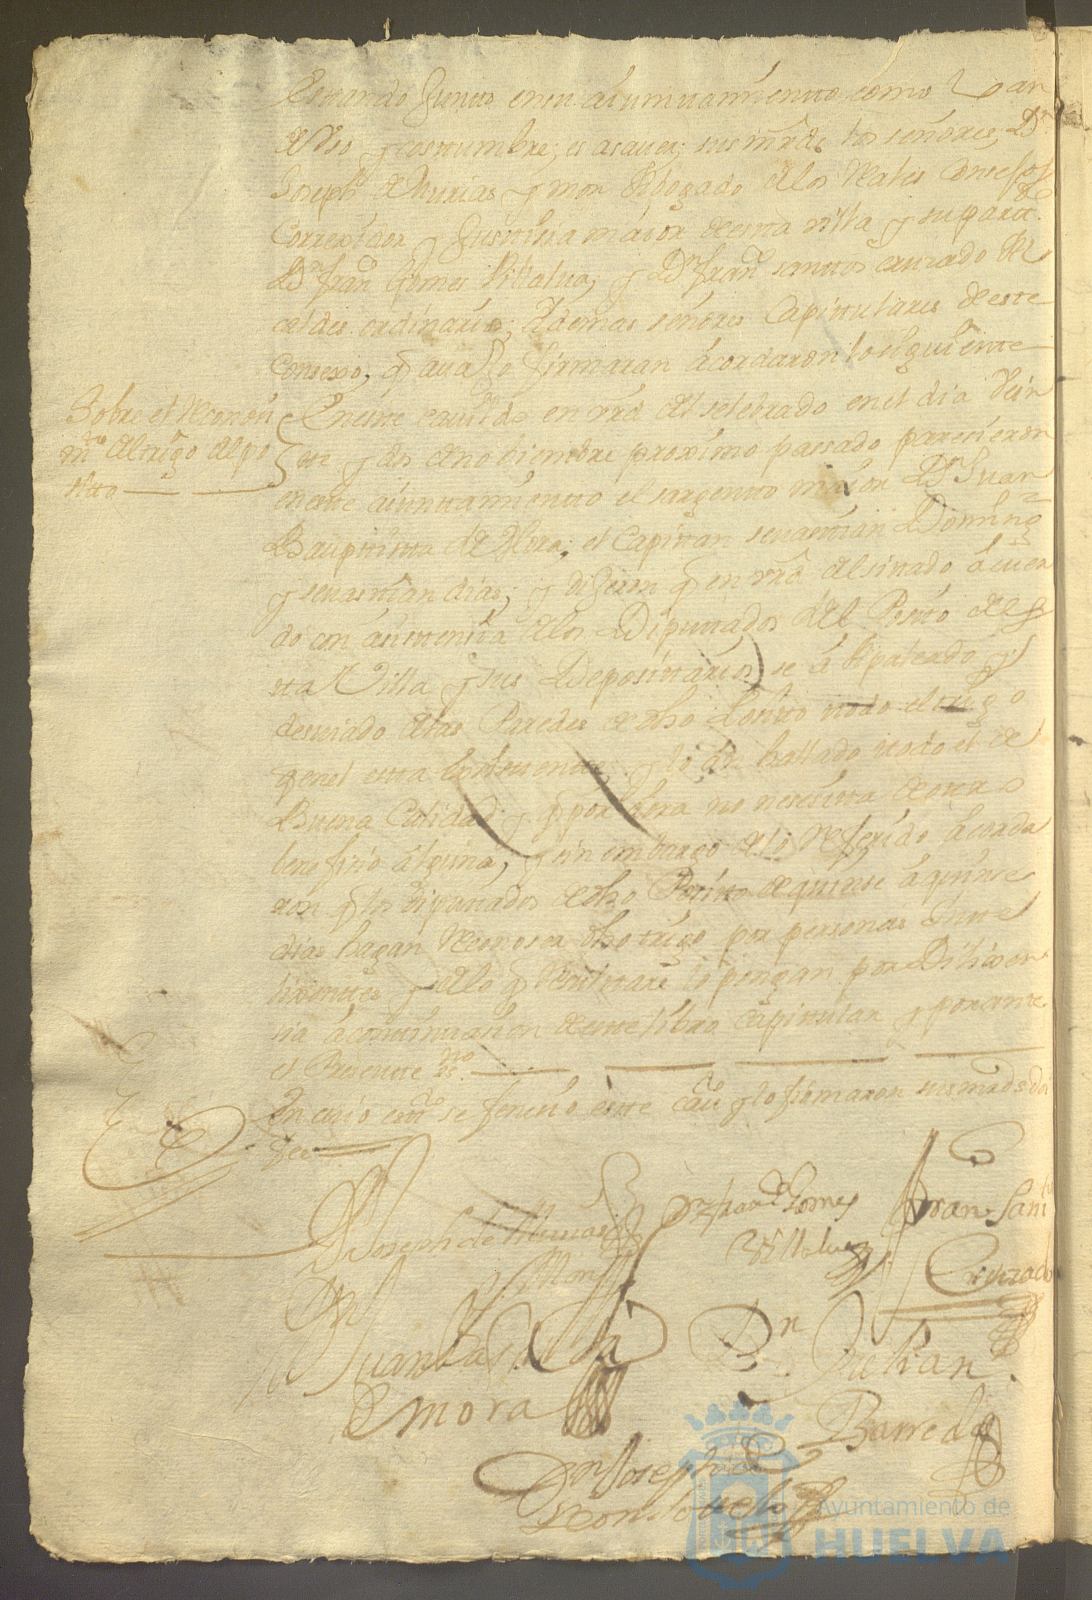 Estando Juntos en su aiuntamiento como Lo an
de Vso y costumbre, es asauer, sus mrds los señores, Dn
Joseph de Murias y mon Abogado de los Reales Consejos
Correxidor y Justisia maior de esta villa y su partido
Dn fran Gomes Villalua, y Dn fran santtos cruzado Al
caldes ordinarios; demas señores Capittulares de este
Consexo, q auajo firmaran acordaron lo siguiente
Sobre el Reconosi
mto del trigo del po
sitto
En este cauildo en vrd del selebrado en el dia Vein
te y dos de nobiembre proximo passado paresieron
en este aiunttamientto el sargentto maior Dn Juan
Bauptistta de Mora, el Capittan seuastian Doming
y seuastian dias, y dijeron q en vrd del sittado acuer
do con asistensia de los Diputtados del Posito de es
tta Villa y sus Depositarios se á apaleado y
desuiado de las Paredes de dho Positto ttodo el trigo
q en el estta existtentte y lo an hallado ttodo el de
Buena Calidad y q por aora no nesesitta de otro
benefisio alguno, y sin embargo de lo Referido acorda
ron q los diputados de dho Positto de quinse a quinse
dias hagan Reconoser dho trigo por personas Intte
lixenttes y de lo q Resultare lo pongan por Dilixen
sia a conttinuasion de este libro Capittular y por ante
el Presente
En cuio esttado se feneció este Cauo y lo firmaron sus mrds doi
fee
Dn Joseph de Murias
y Mon
Dn fran Gomes
Villalua
Dn Fran Santos
Cruzado
Dn Juan Bapta
de mora
Dn Julian
Barreda
Dn Joseph de
Ayuntamiento de
HUELVA